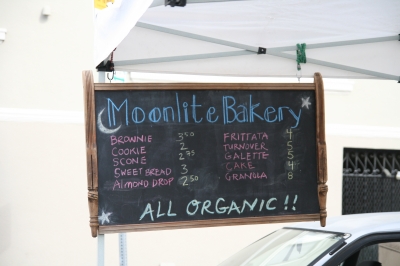 Moonlite Bakery
BROWNIE 3.50
COOKIE 2
SCONE 2.75
SWEET BREAD 3
ALMOND DROP 2.50
FRITTATA 4
TURNOVER 5
GALETTE 5
CAKE 4
GRANOLA 8
ALL ORGANIC!!